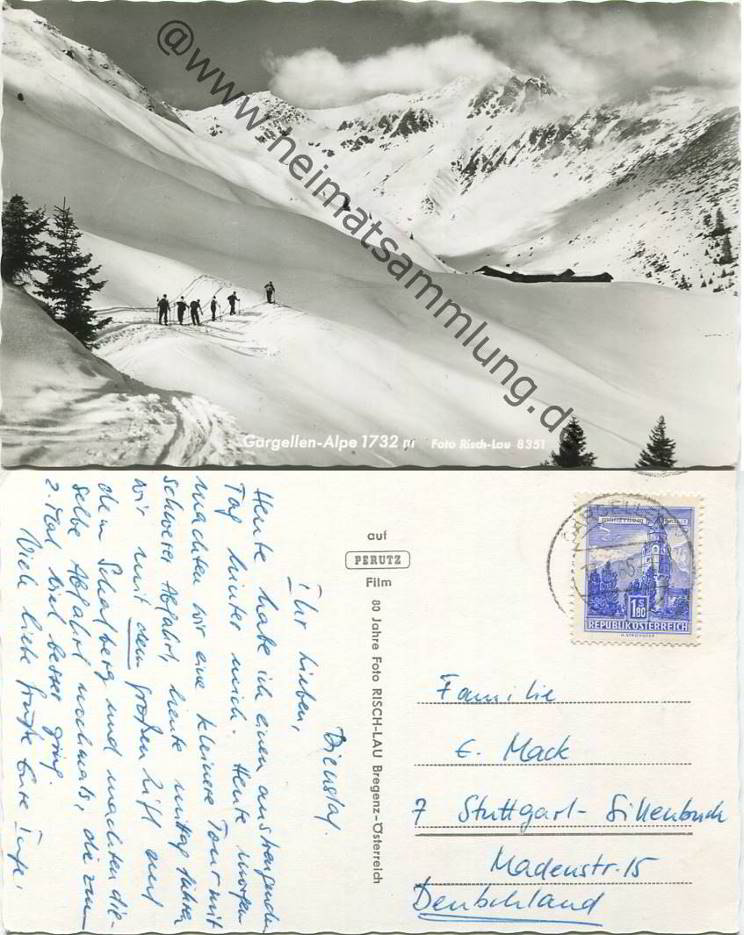 @www.heimatsammlung.de
Gargellen-Alpe 1732 m Foto Risch-Lau 8351
Dienstag.
Ihr Lieben,
Heute habe ich einen anstrengenden
Tag hinter mich. Heute morgen
machten wir eine kleinere Tour mit
schwerer Abfahrt, heute mittag fuhren
wir mit dem großen Lift auf
den Schafberg und machten die-
selbe Abfahrt nochmals, die zum
2. Mal viel besser ging.
Viele liebe Grüße Eure Inge.
auf
PERUTZ
Film
80 Jahre Foto RISCH-LAU Bregenz-Österreich
GARGELLEN
1.80
REPUBLIK ÖSTERREICH
Familie
E. Mack
7 Stuttgart-Sillenbuch
Madenstr. 15
Deutschland